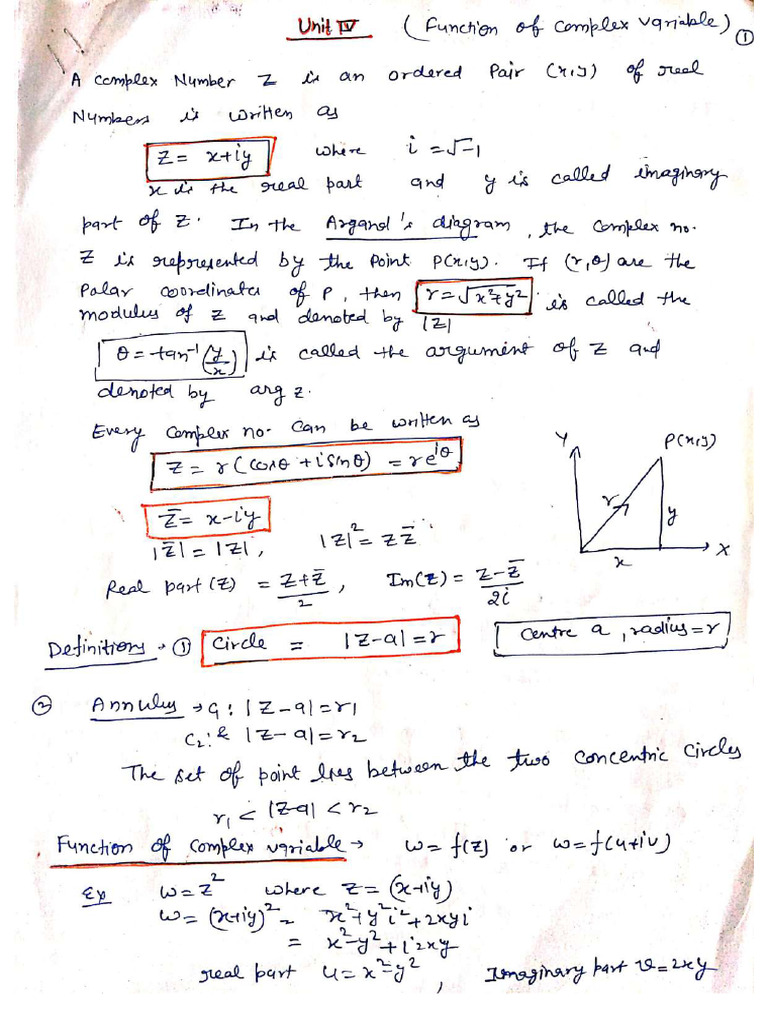 Unit IV (Function of Complex Variable) ①
A Complex Number Z is an ordered Pair (x,y) of real
Numbers is written as
Z = x+iy where i = √-1
x is the real part and y is called imaginary
part of Z. In the Argand's diagram, the complex no.
Z is represented by the Point P(x,y). If (r,θ) are the
Polar coordinates of P, then r = √x²+y² is called the
modulus of Z and denoted by |Z|
θ = tan⁻¹(y/x) is called the argument of Z and
denoted by arg z.
Every complex no. can be written as
Z = r(cosθ + i sinθ) = re^iθ
Y P(x,y)
r y
x X
Z̄ = x-iy
|Z̄| = |Z|, |Z|² = Z Z̄
Real part (Z) = Z+Z̄/2, Im(Z) = Z-Z̄/2i
Definitions → ① Circle = |Z-a| = r Centre a, radius = r
② Annulus → C₁: |Z-a| = r1
C₂: & |Z-a| = r2
The set of point lies between the two concentric circles
r₁ < |Z-a| < r2
Function of complex variable → w = f(z) or w = f(u+iv)
Ex w = z² where z = (x+iy)
w = (x+iy)² = x²+y²i²+2xyi
= x²-y²+i2xy
real part u = x²-y², Imaginary part v = 2xy